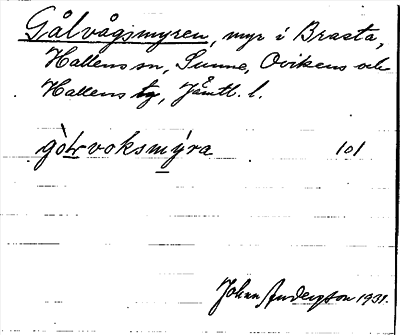 Gålvågsmyren, myr i Brasta,
Hallens sn, Sunne, Ovikens och
Hallens tg, Jämtl. l.
gòLvoksmýra 101
Johan Anderzson 1931.